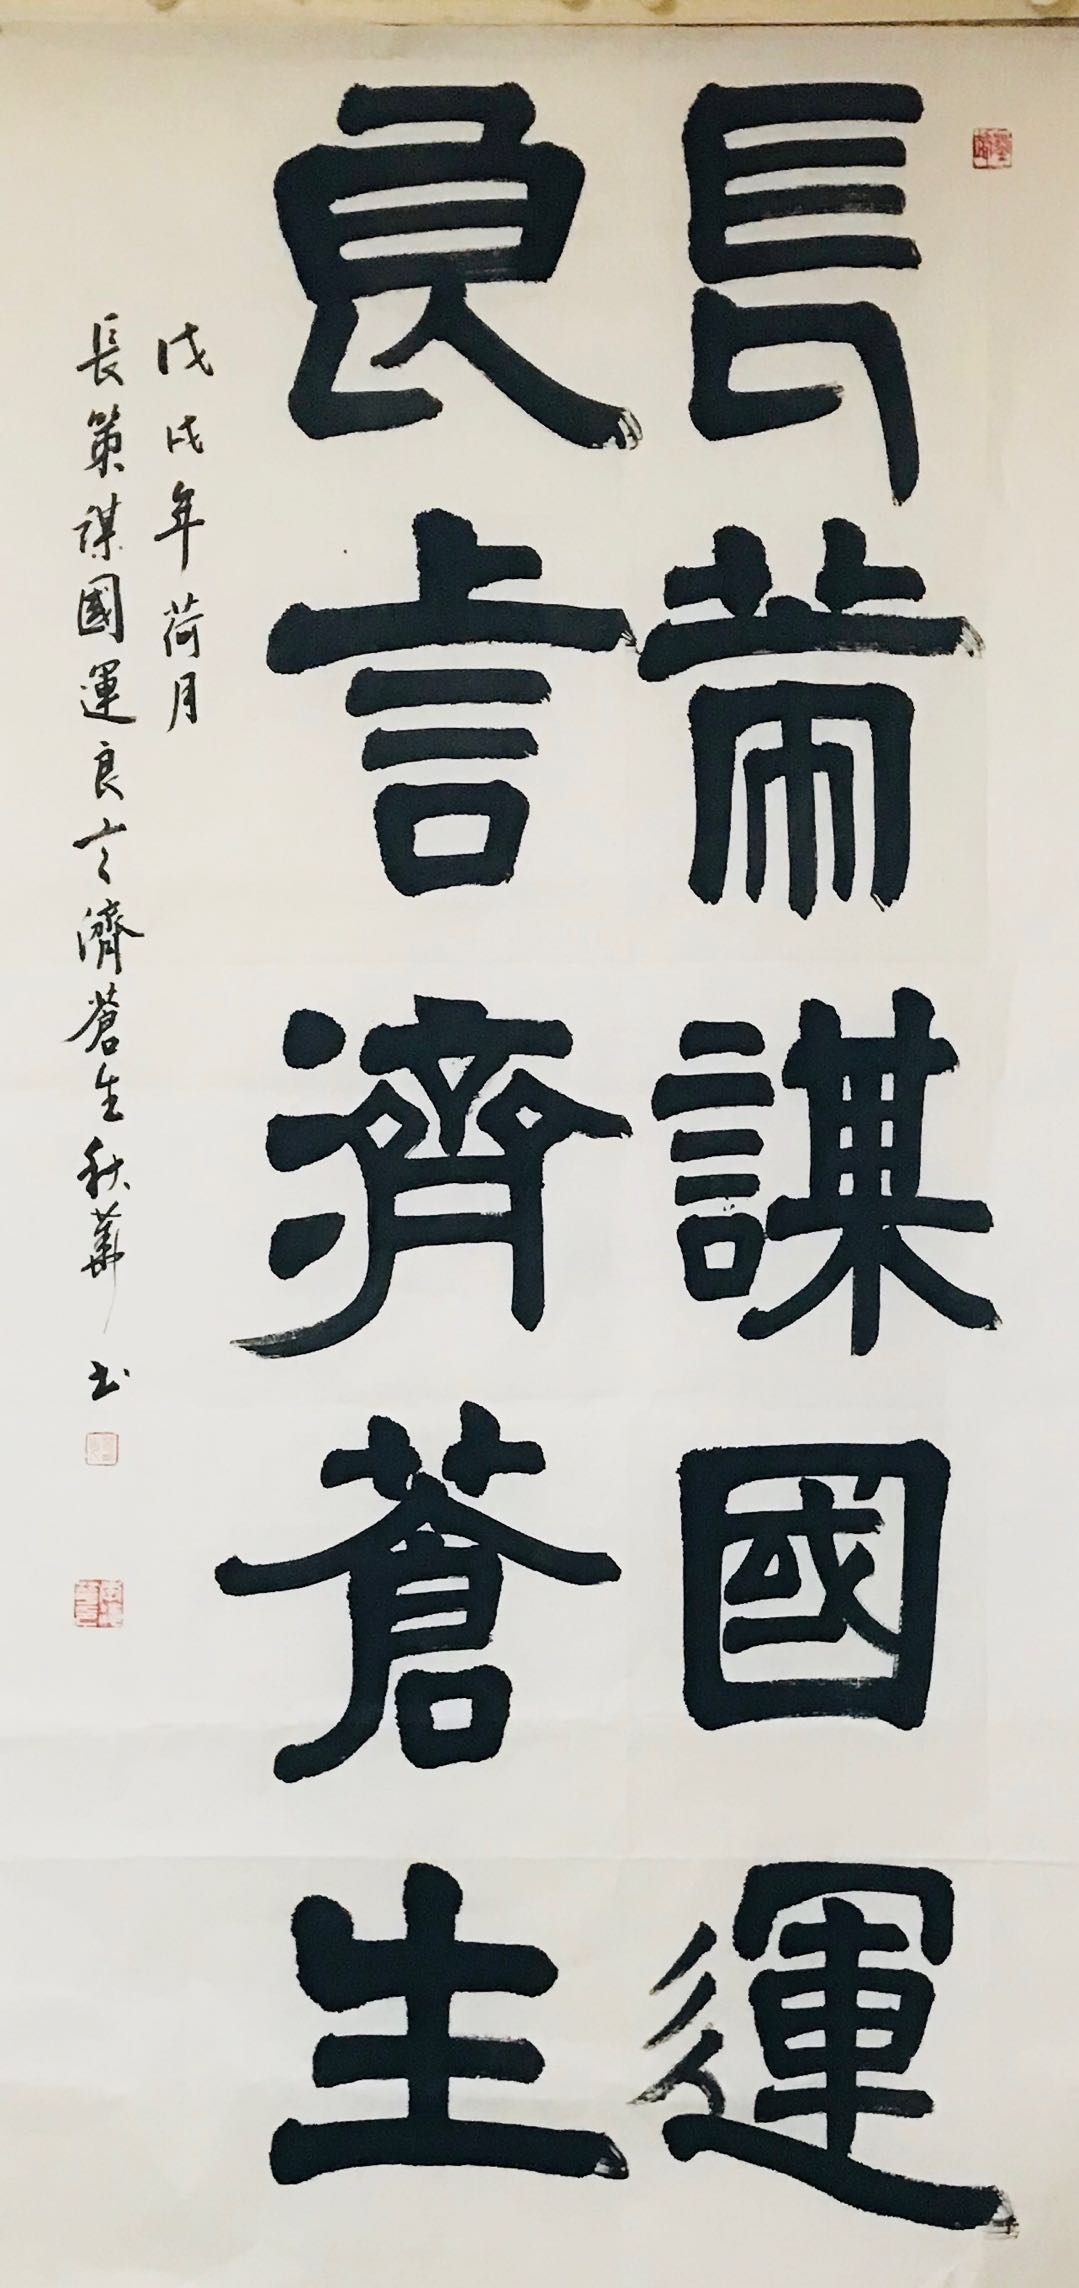 長策謀國運
良言濟蒼生
戊戌年荷月
長策謀國運良言濟蒼生秋華书